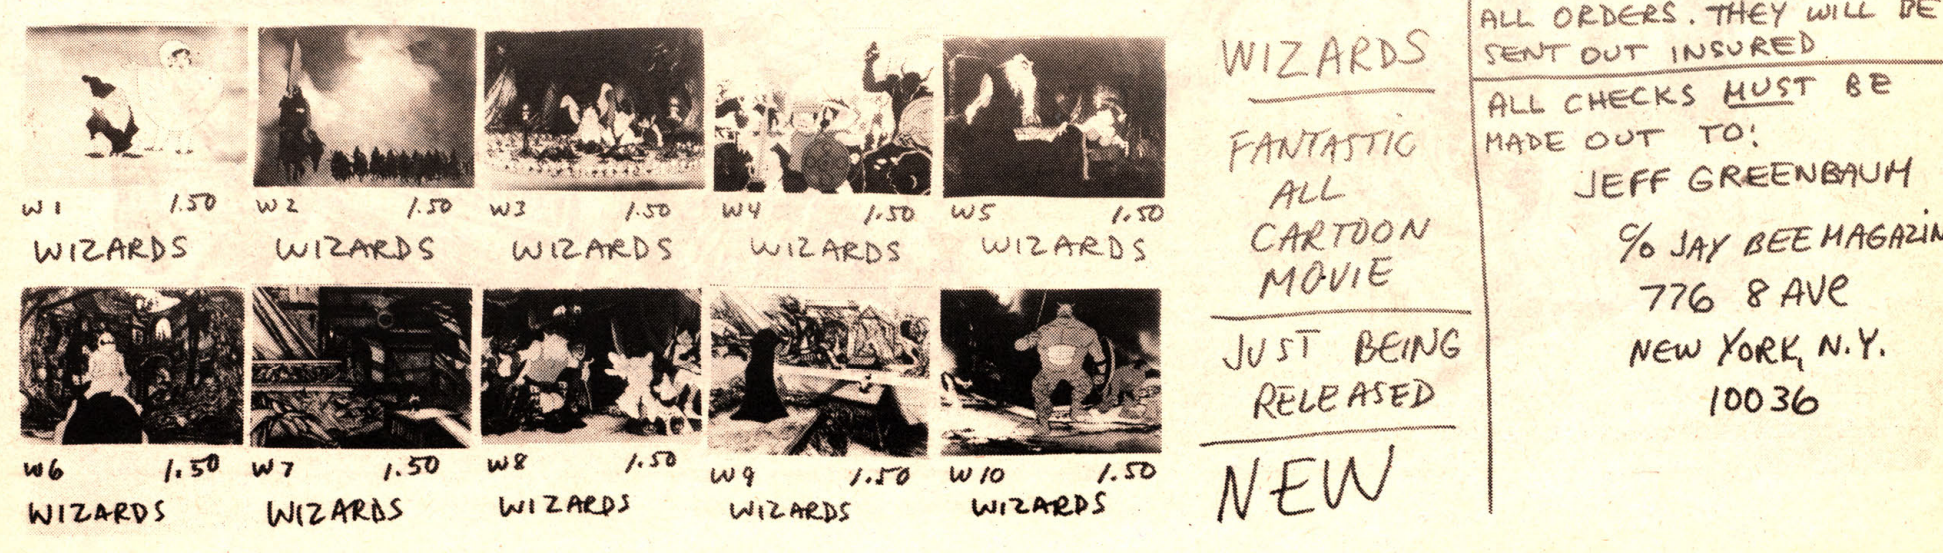 W1 1.50 W2 1.50 W3 1.50 W4 1.50 W5 1.50
WIZARDS WIZARDS WIZARDS WIZARDS WIZARDS
W6 1.50 W7 1.50 W8 1.50 W9 1.50 W10 1.50
WIZARDS WIZARDS WIZARDS WIZARDS WIZARDS
WIZARDS
FANTASTIC
ALL
CARTOON
MOVIE
JUST BEING
RELEASED
NEW
ALL ORDERS. THEY WILL BE
SENT OUT INSURED
ALL CHECKS MUST BE
MADE OUT TO:
JEFF GREENBAUM
c/o JAY BEE MAGAZIN
776 8 AVE
NEW YORK, N.Y.
10036